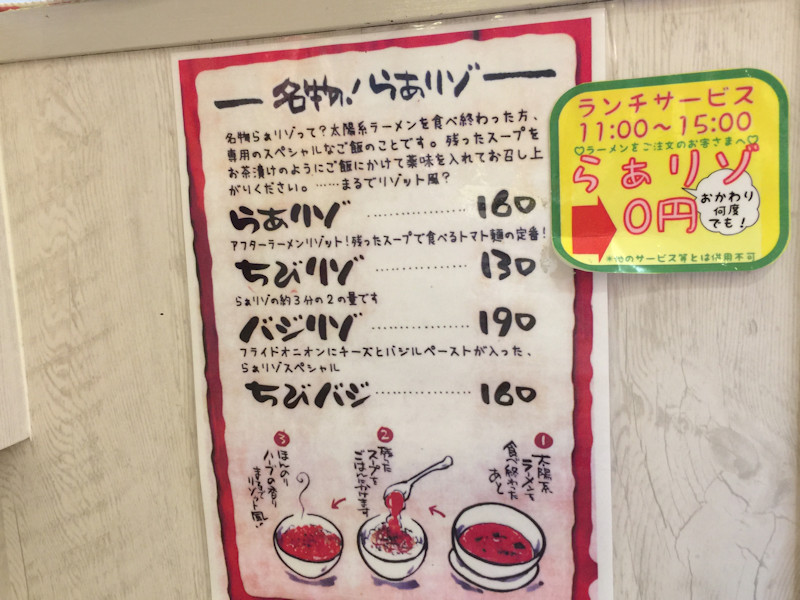 名物の!らぁリゾ
名物らぁリゾって?太陽系ラーメンを食べ終わった方、
専用のスペシャルなご飯のことです。残ったスープを
お茶漬けのようにご飯にかけて薬味を入れてお召し上
がりください。……まるでリゾット風?
らぁリゾ ……………… 160
アフターラーメンリゾット!残ったスープで食べるトマト麺の定番!
ちびリゾ ……………… 130
らぁリゾの約3分の2の量です
バジリゾ ……………… 190
フライドオニオンにチーズとバジルペーストが入った、
らぁリゾスペシャル
ちびバジ ……………… 160
1
太陽系
ラーメンを
食べ終わった
あと
2
残った
スープを
ごはんにかけます
3
ほんのり
ハーブの香り
まるで
リゾット風!
ランチサービス
11:00〜15:00
♡ラーメンをご注文のお客さまへ♡
らぁリゾ
0円
おかわり
何度
でも!
*他のサービス等とは併用不可